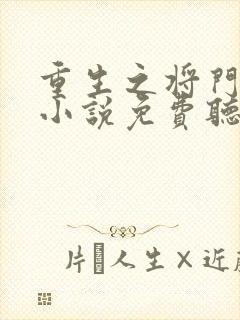 重生之将門
小説免費聽
片 人生×近